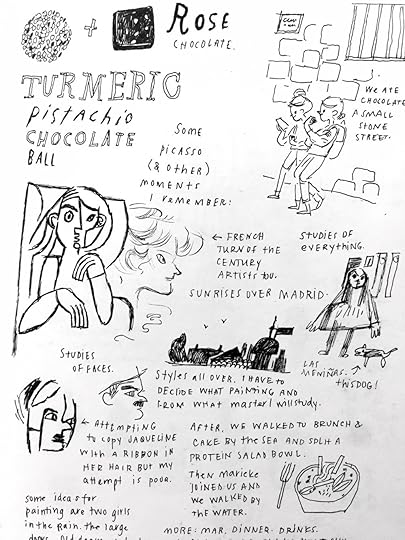 + ROSE
CHOCOLATE.
TURMERIC
pistachio
CHOCOLATE
BALL
WE ATE
CHOCOLATE
A SMALL
STONE
STREET.
Some
picasso
(& other)
moments
I remember:
← FRENCH
TURN OF THE
CENTURY
ARTISTS TOO.
STUDIES OF
everything.
SUNRISES OVER MADRID.
LAS
MENIÑAS.
THIS DOG!
STUDIES
OF FACES.
Styles all over. I have to
DECIDE WHAT PAINTING AND
FROM WHAT master I will study.
← ATTEMPTING
to copy JAQUELINE
WITH A RIBBON IN
HER HAIR BUT MY
attempt is poor.
AFTER, WE WALKED TO BRUNCH &
CAKE BY THE SEA AND SPLIT A
PROTEIN SALAD BOWL.
Then Marieke
JOINED US AND
WE WALKED BY
THE WATER.
some ideas for
painting are two girls
in the rain. the large
MORE: MAR. DINNER. DRINKS.